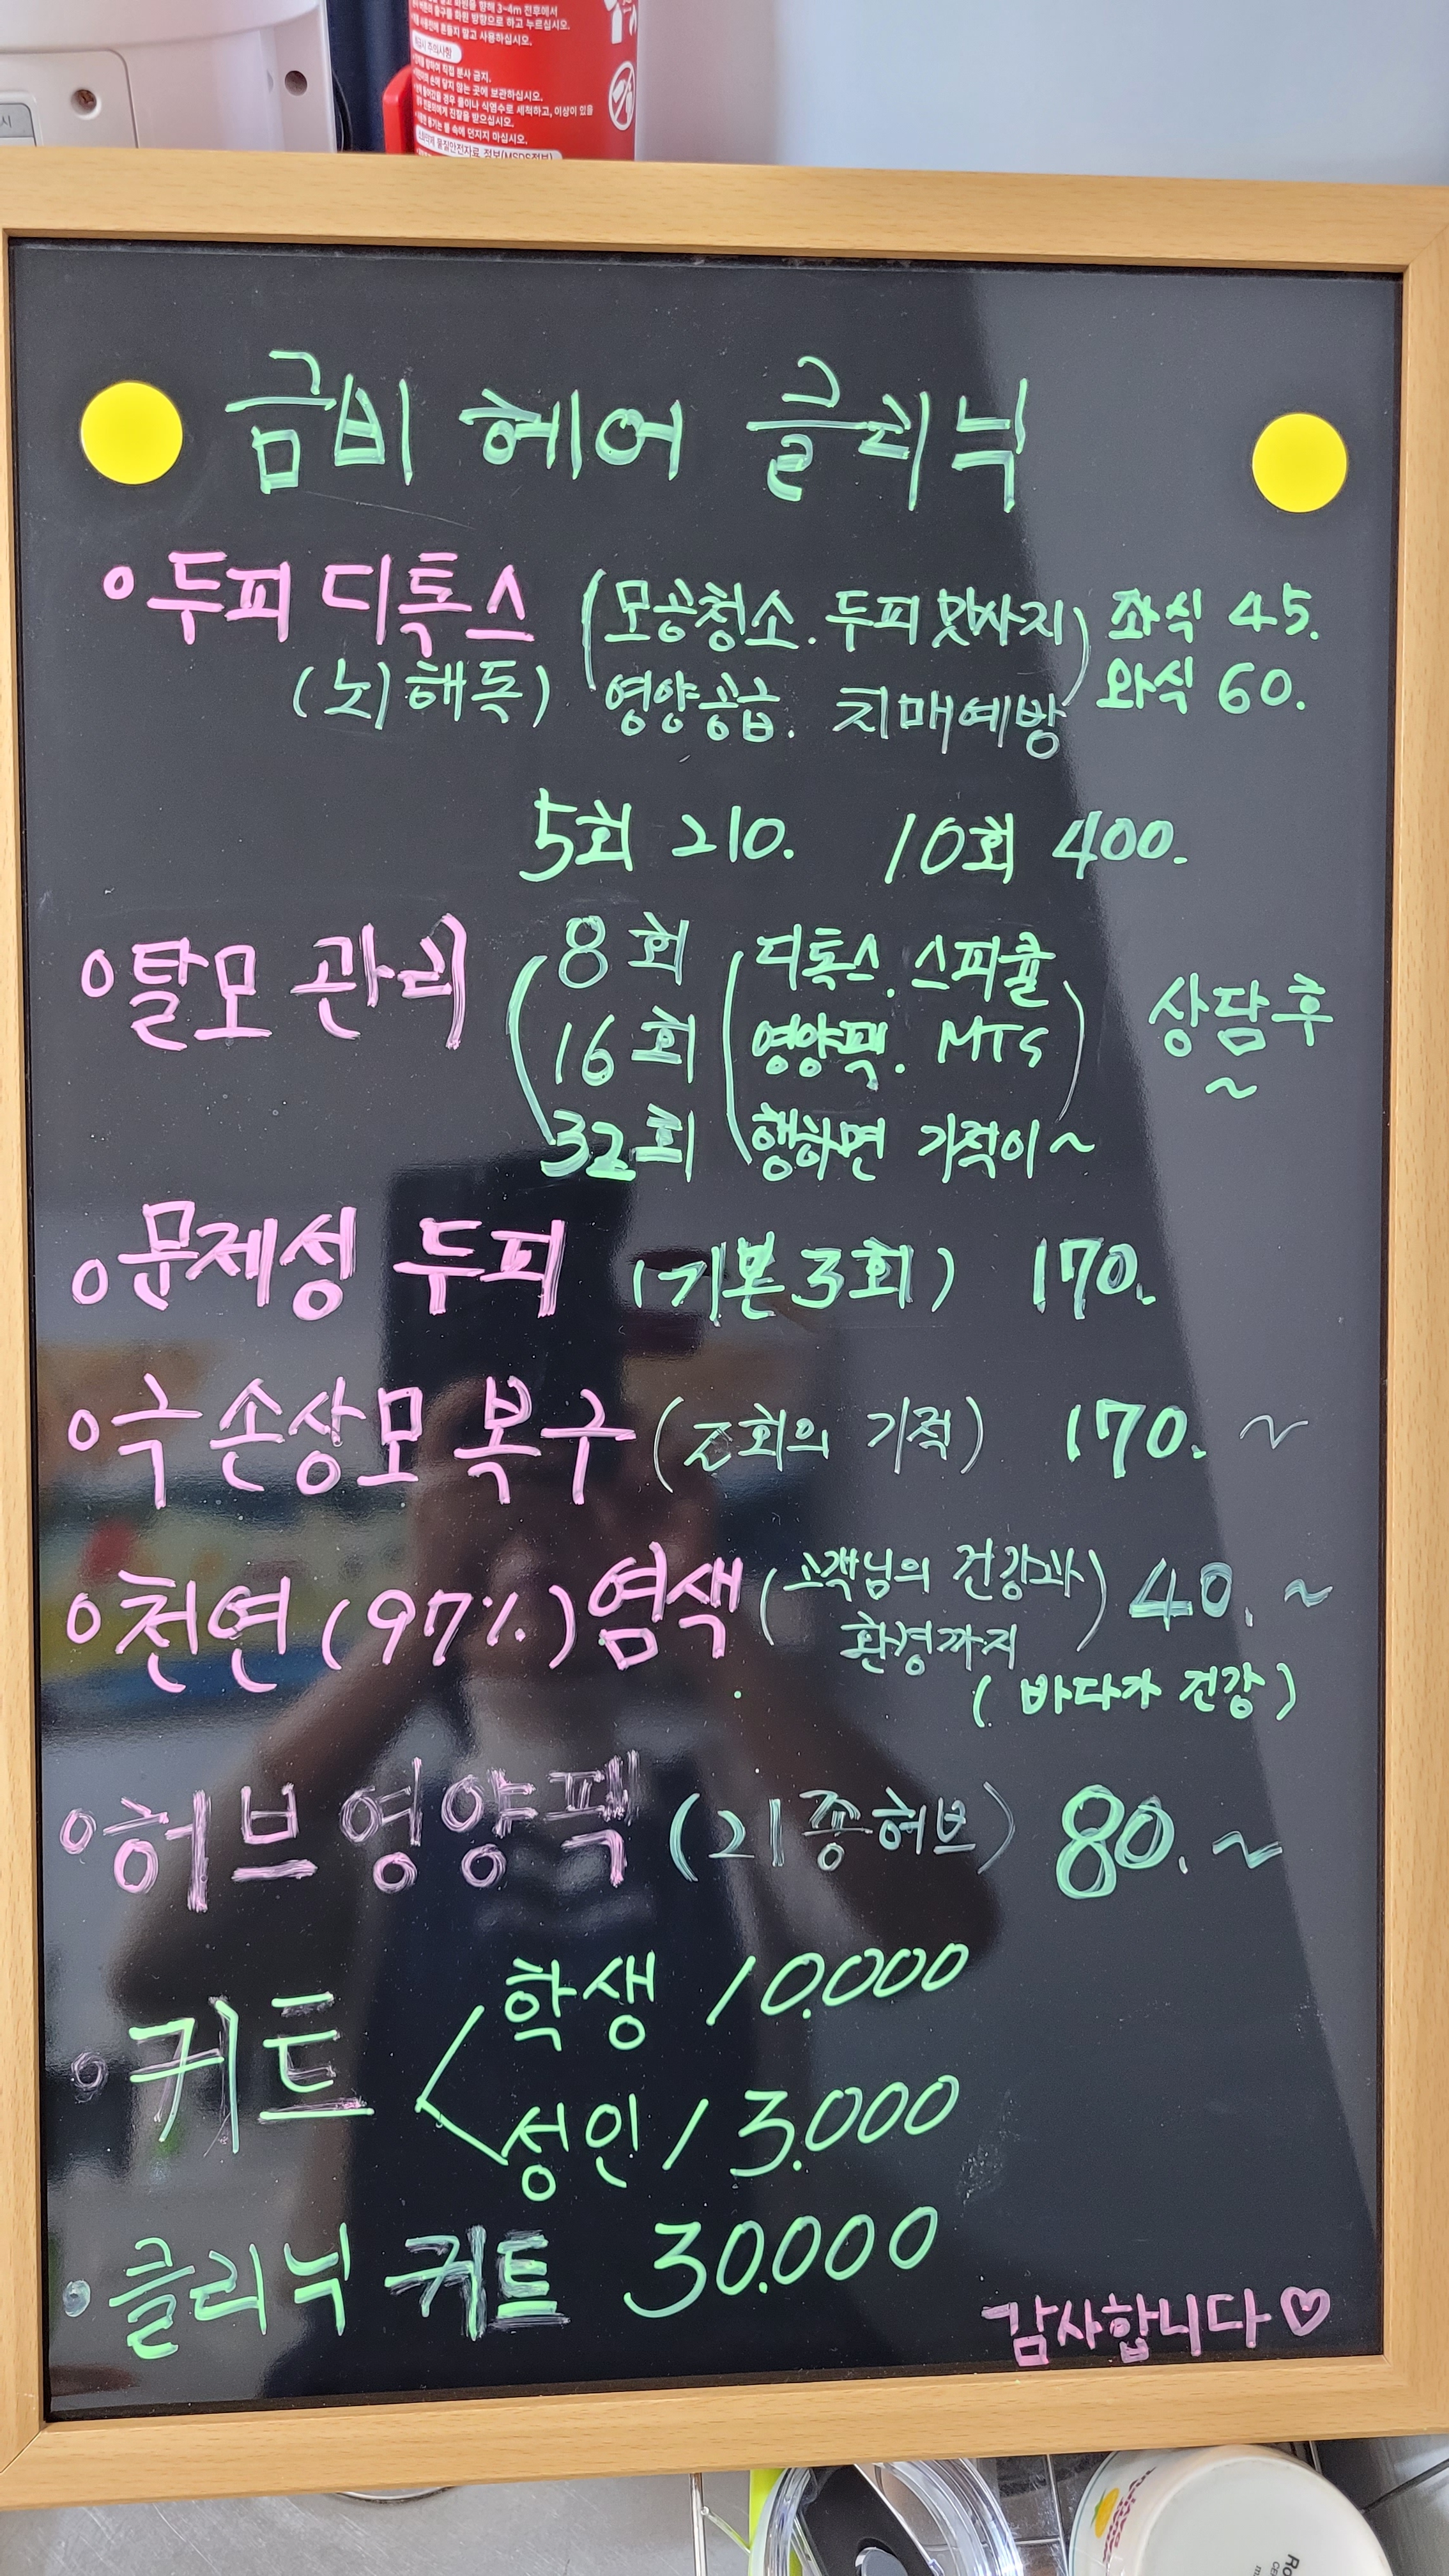 화원을 향해 3~4m 전후에서
방향으로 하고 누르십시오.
말고 사용하십시오.
주의사항
직접 분사 금지.
손에 닿지 않는 곳에 보관하십시오.
경우 물이나 식염수로 세척하고, 이상이 있을
진찰을 받으십시오.
불 속에 던지지 마십시오.
물질안전자료 정보(MSDS정보)
시
금비 헤어 클리닉
두피 디톡스 (모공청소. 두피 맛사지) 좌식 45.
(뇌해독) 영양공급. 치매예방 와식 60.
5회 210. 10회 400.
탈모 관리 (8회 (디톡스. 스피큘
16회 영양팩. MTS) 상담후~
32회 행하면 기적이~
문제성 두피 (기본3회) 170.
극손상모 복구 (2회의 기적) 170. ~
천연(97%)염색 (고객님의 건강과 환경까지) 40. ~
(바다가 건강)
허브 영양팩 (21종허브) 80. ~
귀트 < 학생 10.000
성인 13.000
클리닉 귀트 30.000
감사합니다♡